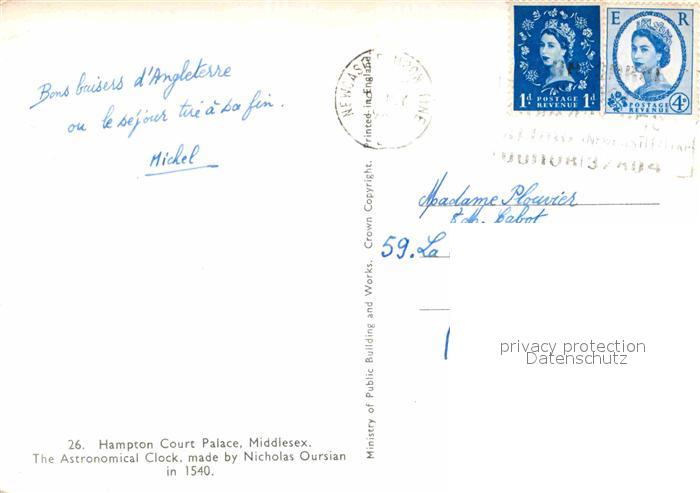 Bons baisers d'Angleterre
ou le séjour tire à sa fin.
Michel
26. Hampton Court Palace, Middlesex.
The Astronomical Clock, made by Nicholas Oursian
in 1540.
Ministry of Public Building and Works. Crown Copyright. Printed in England
NEWCASTLE UPON TYNE
1d POSTAGE REVENUE 1d
E R
POSTAGE REVENUE 4d
Madame Plouvier
Cabot
59. La
privacy protection
Datenschutz